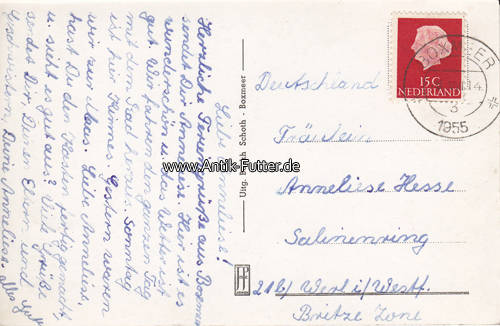 Liebe Anneliese!
Herzliche Feriengrüße aus Boxmeer
sendet Dir Annelies. Hier ist es
wunderschön u. das Wetter ist
gut. Wir fahren den ganzen Tag
mit dem Rad herum. Sonntag
ist hier Kirmes. Gestern waren
wir zur Maas. Liebe Annelies,
hast Du den
fertig gemacht,
u. sieht es gut aus? Viele Grüße
sendet Dir, Deinen Eltern und
Geschwistern, Deine Annelies.
Uitg. Fa.
Schoth - Boxmeer
www.Antik-Futter.de
15C
NEDERLAND
BOXMEER
1955
Deutschland
Fräulein
Anneliese Hesse
Salinenring
21b/ Werl i/Westf.
Britze Zone